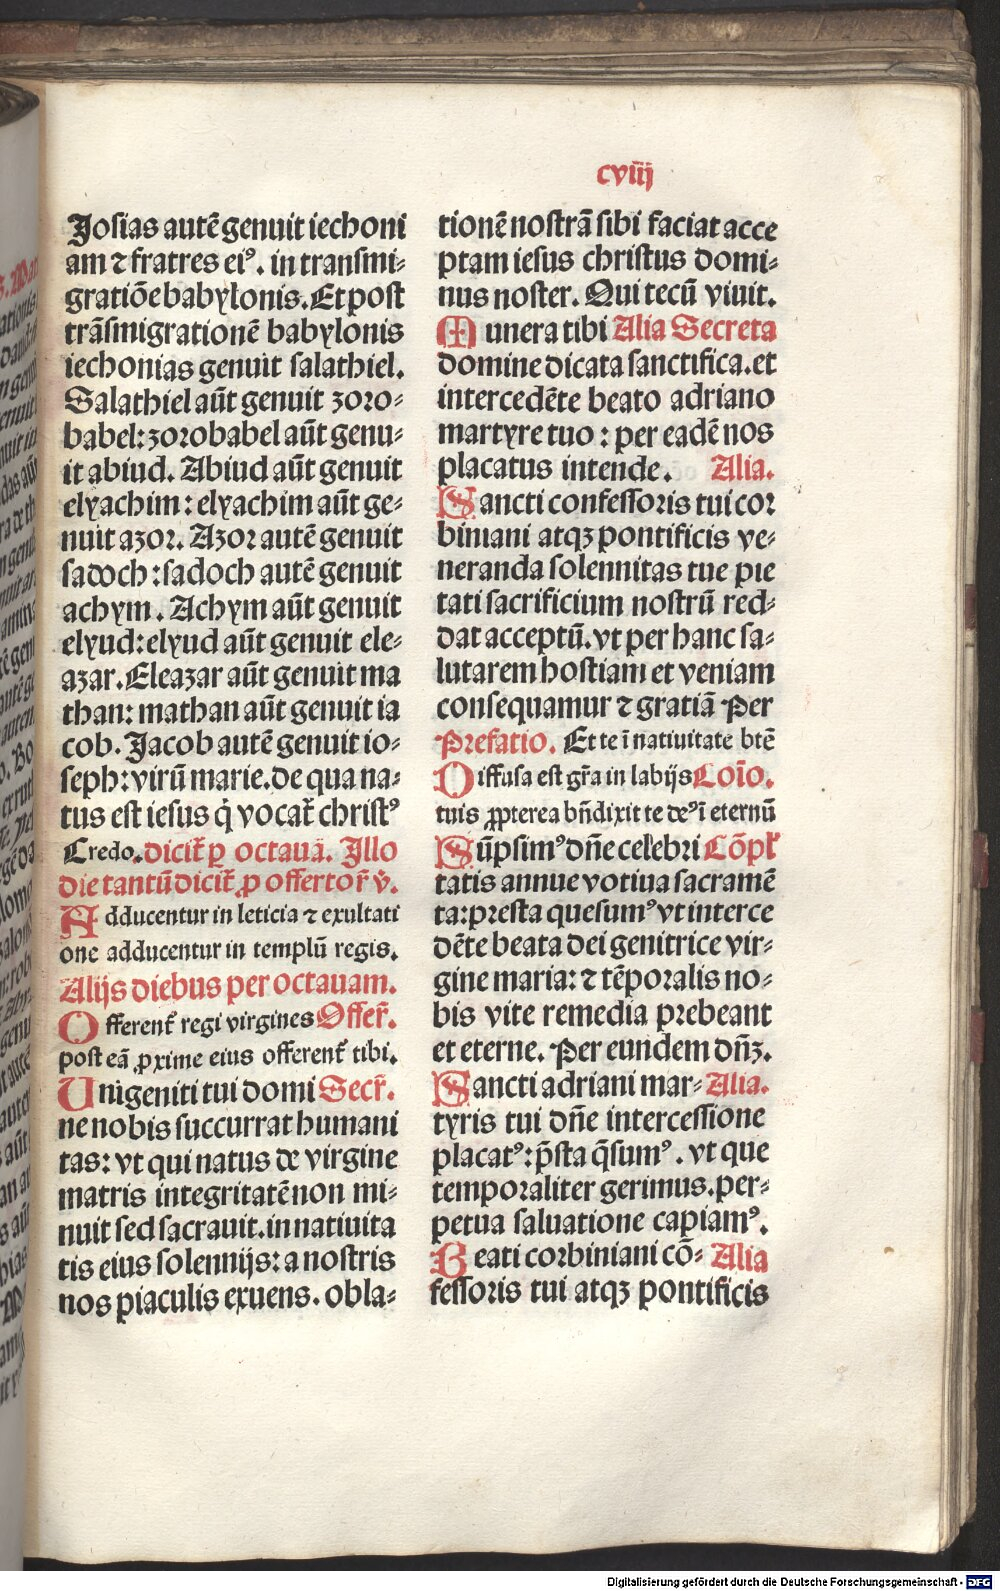 cviij
Josias autē genuit iechoni
am ⁊ fratres eiꝰ. in transmi⸗
gratiōe babylonis. Et post
trāsmigrationē babylonis
iechonias genuit salathiel.
Salathiel aūt genuit zoro⸗
babel: zorobabel aūt genu⸗
it abiud. Abiud aūt genuit
elyachim: elyachim aūt ge⸗
nuit azor. Azor autē genuit
sadoch: sadoch autē genuit
achym. Achym aūt genuit
elyud: elyud aūt genuit ele⸗
azar. Eleazar aūt genuit ma
than: mathan aūt genuit ia
cob. Jacob autē genuit io⸗
seph: virū marie. de qua na⸗
tus est iesus q̇ vocat̃ christꝰ
Credo. dicit̃ ꝑ octauā. Illo
die tantū dicit̃ ꝓ offertor̃ v̄.
Adducentur in leticia ⁊ exultati
one adducentur in templū regis.
Alijs diebus per octauam.
Offerent̃ regi virgines Offer̃.
post eā ꝓxime eius offerent̃ tibi.
Unigeniti tui domi Secr̃.
ne nobis succurrat humani
tas: vt qui natus de virgine
matris integritatē non mi⸗
nuit sed sacrauit. in natiuita
tis eius solennijs: a nostris
nos piaculis exuens. obla⸗
tionē nostrā sibi faciat acce
ptam iesus christus domi⸗
nus noster. Qui tecū viuit.
Munera tibi Alia Secreta
domine dicata sanctifica. et
intercedēte beato adriano
martyre tuo: per eadē nos
placatus intende. Alia.
Sancti confessoris tui cor
biniani atqꝫ pontificis ve⸗
neranda solennitas tue pie
tati sacrificium nostrū red⸗
dat acceptū. vt per hanc sa⸗
lutarem hostiam et veniam
consequamur ⁊ gratiā Per
Prefatio. Et te ī natiuitate btē
Diffusa est gr̃a in labijs Cōio.
tuis ꝓpterea bñdixit te deꝰ ī eternū
Sūpsimꝰ dñe celebri Cōpl̃
tatis annue votiua sacramē
ta: presta quesumꝰ vt interce
dēte beata dei genitrice vir⸗
gine maria: ⁊ tēporalis no⸗
bis vite remedia prebeant
et eterne. Per eundem dñꝫ.
Sancti adriani mar⸗ Alia.
tyris tui dñe intercessione
placatꝰ: p̄sta q̄sumꝰ. vt que
temporaliter gerimus. per⸗
petua saluatione capiamꝰ.
Beati corbiniani cō⸗ Alia
fessoris tui atqꝫ pontificis
Digitalisierung gefördert durch die Deutsche Forschungsgemeinschaft - DFG